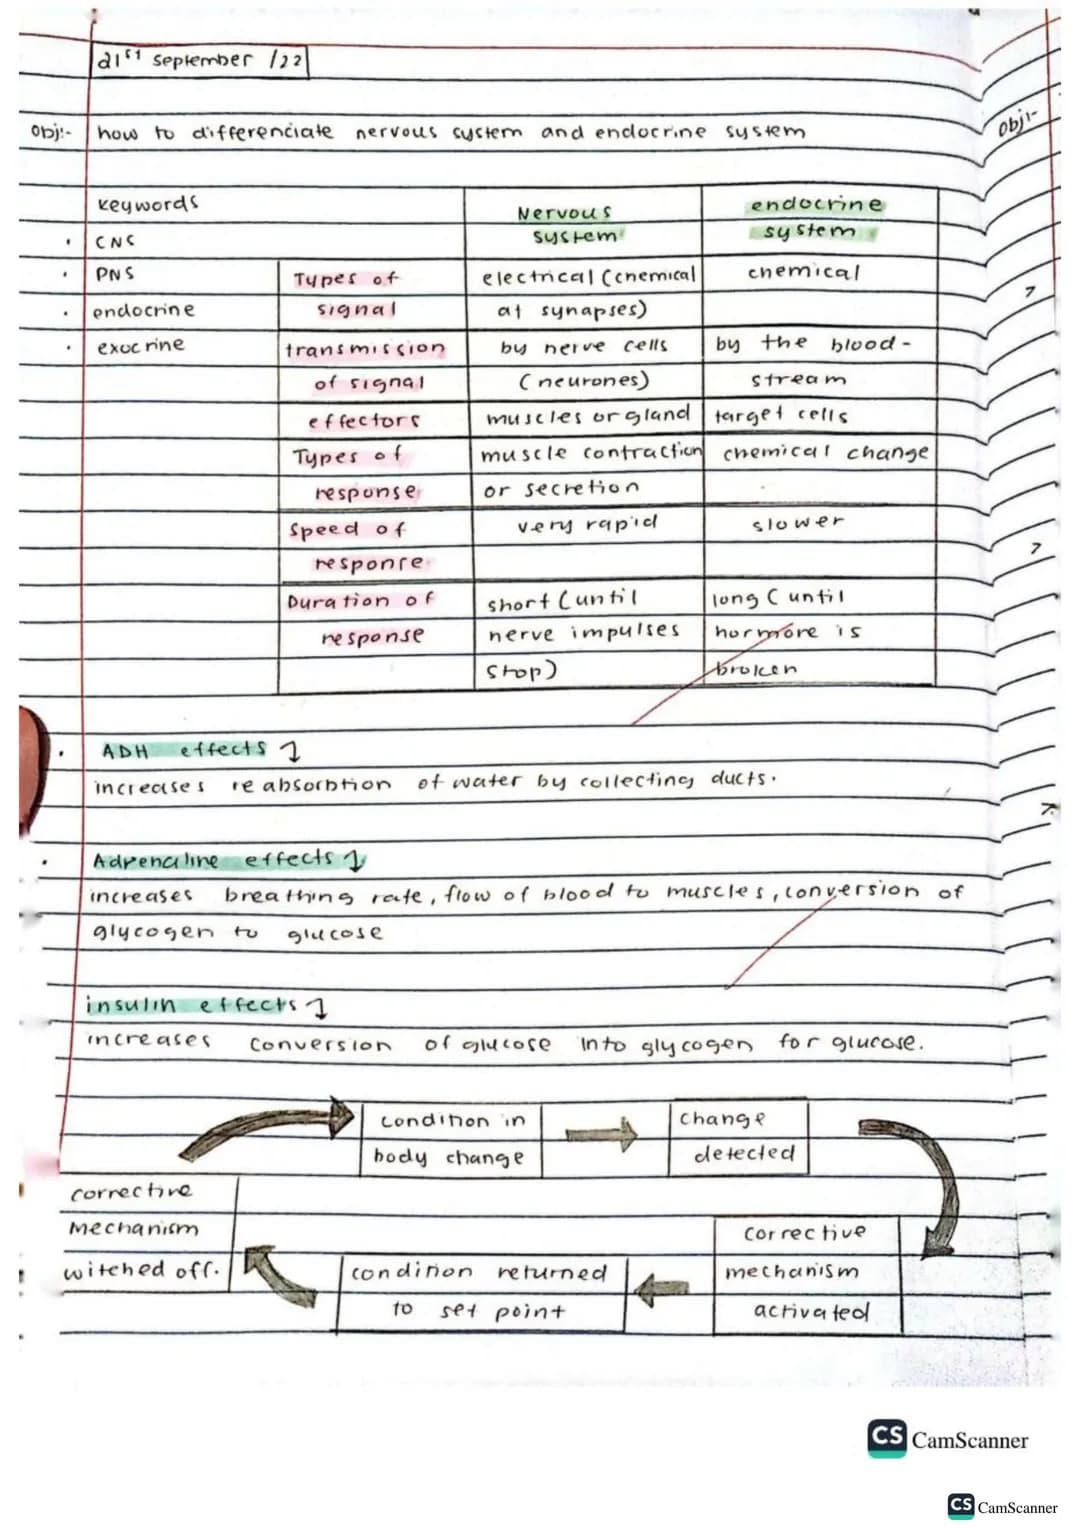 21st september /22
obj:- how to differenciate nervous system and endocrine system
obj:-
keywords
• CNS
• PNS
• endocrine
• exocrine
Nervous system
endocrine system
Types of signal
electrical (chemical at synapses)
chemical
transmission of signal
by nerve cells (neurones)
by the blood-stream
effectors
muscles or gland
target cells
Types of response
muscle contraction or secretion
chemical change
Speed of response
very rapid
slower
Duration of response
short (until nerve impulses stop)
long (until hormore is broken
• ADH effects
increases reabsorbtion of water by collecting ducts.
• Adrenaline effects
increases breathing rate, flow of blood to muscles, conversion of
glycogen to glucose
insulin effects
increases conversion of glucose into glycogen for glucose.
condition in
body change
change
detected
corrective
mechanism
activated
condition returned
to set point
corrective
mechanism
witched off.
CS CamScanner
CS CamScanner